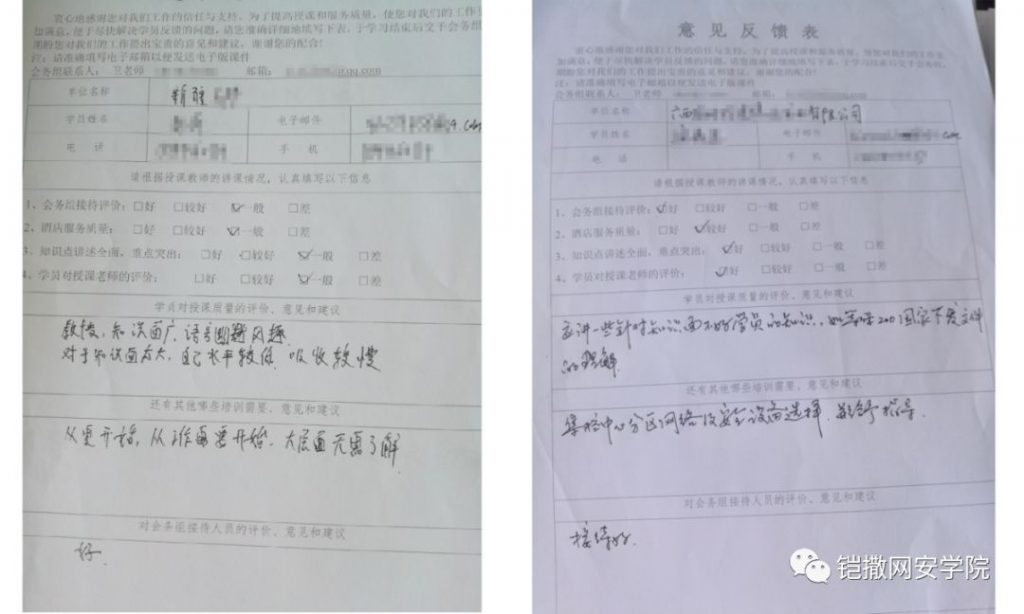 衷心地感谢您对我们工作的信任与支持。为了提高授课和服务质量，使您对我们的工作
加满意，便于尽快解决学员反馈的问题，请您准确详细地填写下表，于学习结束后交于会务组
期盼您对我们的工作提出宝贵的意见和建议，谢谢您的配合!
注：请准确填写电子邮箱以便发送电子版课件
会务组联系人： 卫老师 邮箱： qq.com
单位名称
学员姓名 电子邮件 .com
电 话 手 机
请根据授课教师的讲课情况，认真填写以下信息
1、会务组接待评价: □好 □较好 ☑一般 □差
2、酒店服务质量: □好 □较好 ☑一般 □差
3、知识点讲述全面，重点突出: □好 □较好 ☑一般 □差
4、学员对授课老师的评价: □好 □较好 ☑一般 □差
学员对授课质量的评价、意见和建议
教授，知识面广，语言幽默风趣
对于知识面太大，自己水平较低，吸收较慢
还有其他哪些培训需要、意见和建议
大层面无需了解
对会务组接待人员的评价、意见和建议
好
意见反馈表
衷心地感谢您对我们工作的信任与支持。为了提高授课和服务质量，使您对我们的工作
加满意，便于尽快解决学员反馈的问题，请您准确详细地填写下表，于学习结束后交于会务
期盼您对我们的工作提出宝贵的意见和建议，谢谢您的配合!
注：请准确填写电子邮箱以便发送电子版课件
会务组联系人： 卫老师 邮箱：
单位名称 广西 有限公司
学员姓名 电子邮件 com
电 话 手 机
请根据授课教师的讲课情况，认真填写以下信息
1、会务组接待评价: ☑好 □较好 □一般 □差
2、酒店服务质量: □好 ☑较好 □一般 □差
3、知识点讲述全面，重点突出: ☑好 □较好 □一般 □差
4、学员对授课老师的评价: ☑好 □较好 □一般 □差
学员对授课质量的评价、意见和建议
讲一些针对知识面不好学员的知识，国家下发文件
的理解
还有其他哪些培训需要、意见和建议
集控中心分区网络及安全设备选择，给予指导.
对会务组接待人员的评价、意见和建议
接待好.
铠撒网安学院